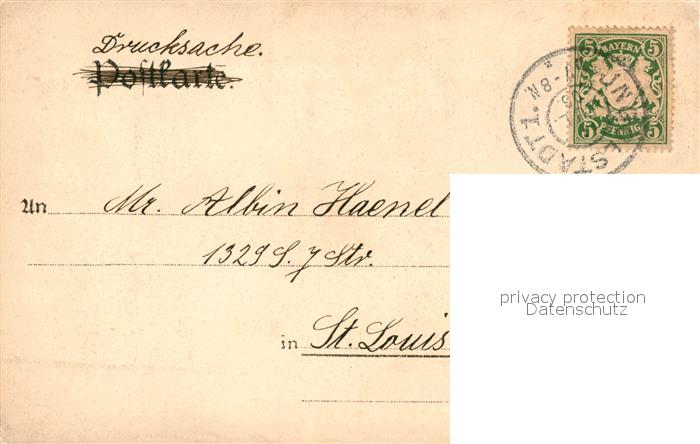 Drucksache.
Postkarte.
5 BAYERN 5
5 PFENNIG 5
An Mr. Albin Haenel
1329 S. 7 Str.
in St. Louis
privacy protection
Datenschutz